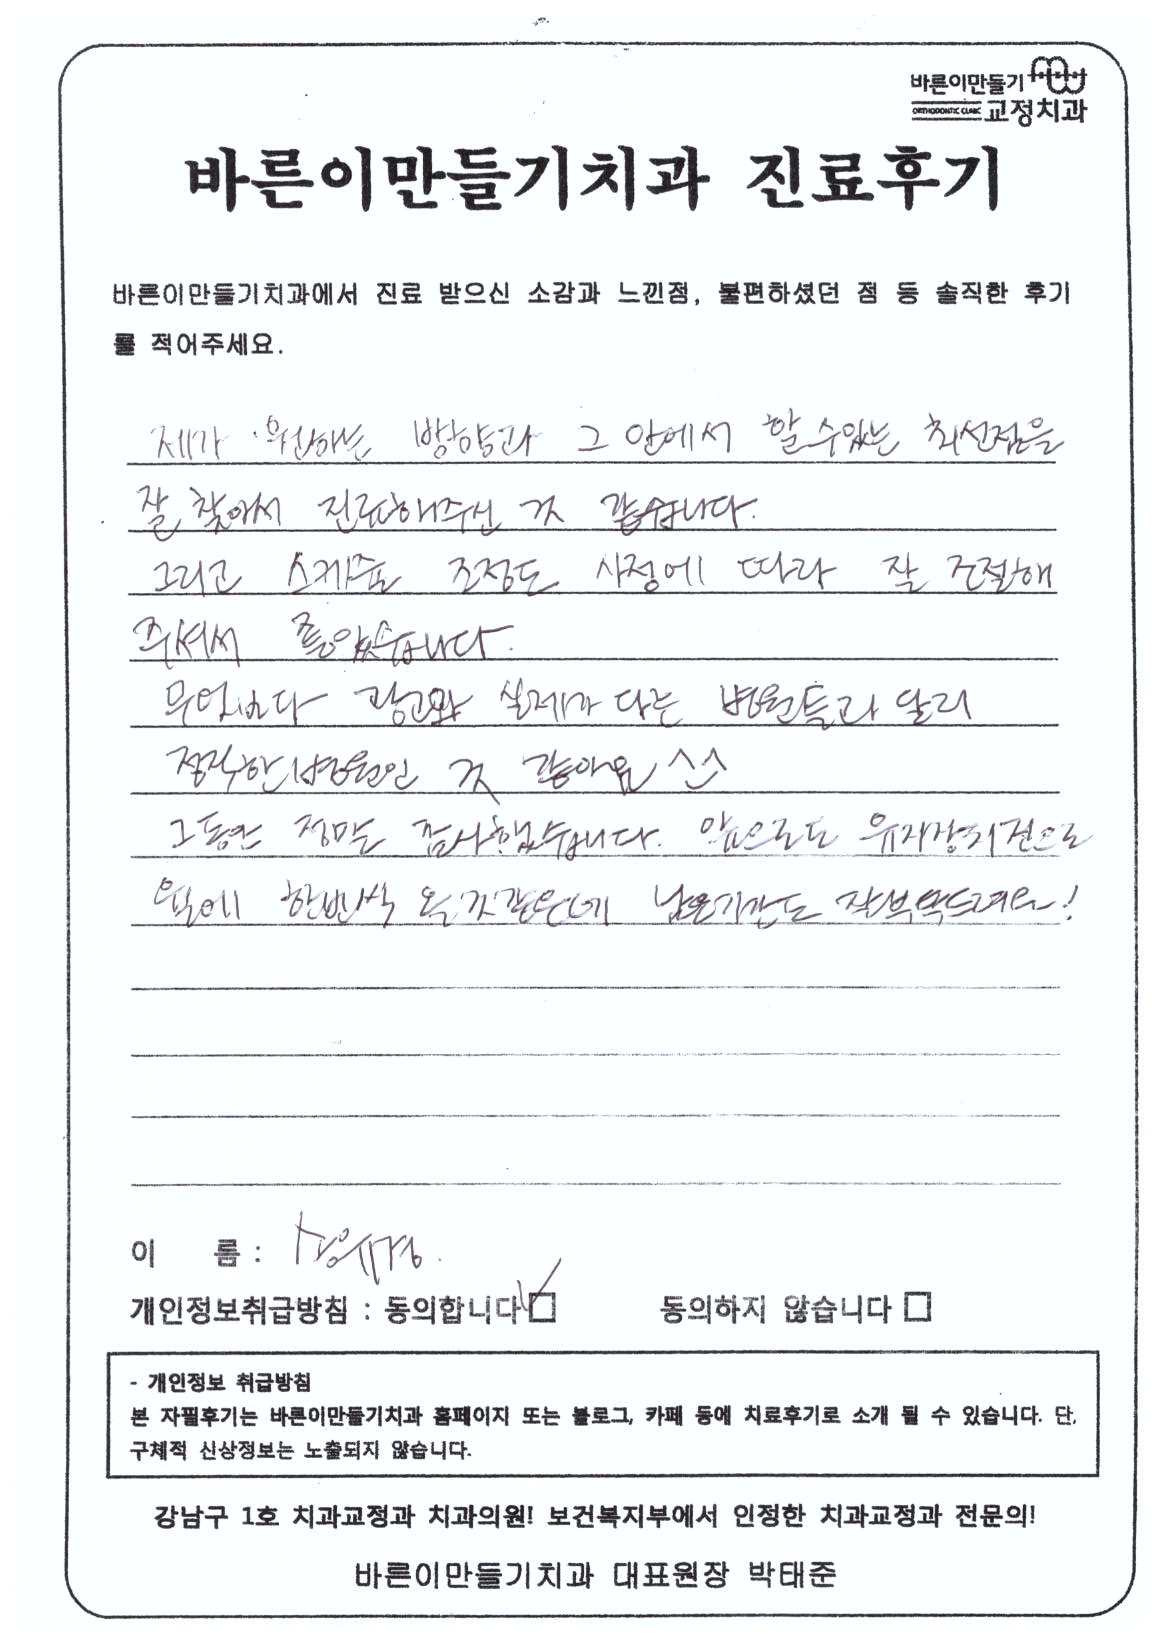 바른이만들기
ORTHODONTIC CLINIC 교정치과
바른이만들기치과 진료후기
바른이만들기치과에서 진료 받으신 소감과 느낀점, 불편하셨던 점 등 솔직한 후기
를 적어주세요.
제가 원하는 방향과 그 안에서 할 수있는 최선점을
잘 찾아서 진료해주신 것 같습니다.
그리고 스케쥴 조정도 사정에 따라 잘 조절해
주셔서 좋았습니다.
무엇보다 광고와 실제가 다른 병원들과 달리
정직한 병원인 것 같아요 ^^
그동안 정말 감사했습니다. 앞으로도 유지장치건으로
월에 한번씩 올것같은데 남은기간도 잘부탁드려요!
이 름 :
개인정보취급방침 : 동의합니다 ☑ 동의하지 않습니다 □
- 개인정보 취급방침
본 자필후기는 바른이만들기치과 홈페이지 또는 블로그, 카페 등에 치료후기로 소개 될 수 있습니다. 단,
구체적 신상정보는 노출되지 않습니다.
강남구 1호 치과교정과 치과의원! 보건복지부에서 인정한 치과교정과 전문의!
바른이만들기치과 대표원장 박태준